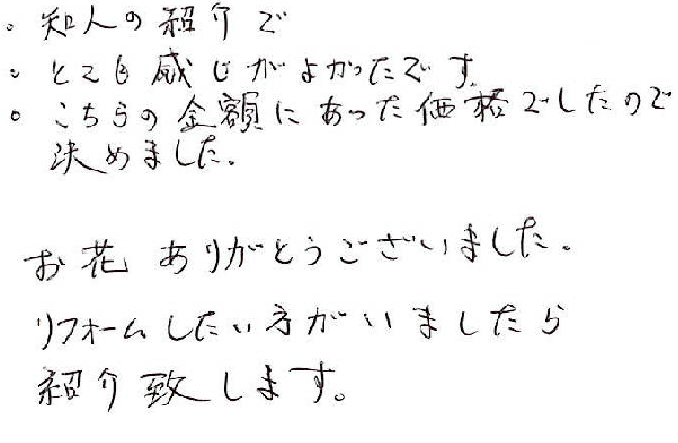 。知人の紹介で
。とても感じがよかったです。
。こちらの金額にあった価格でしたので
決めました。
お花ありがとうございました。
リフォームしたい方がいましたら
紹介致します。